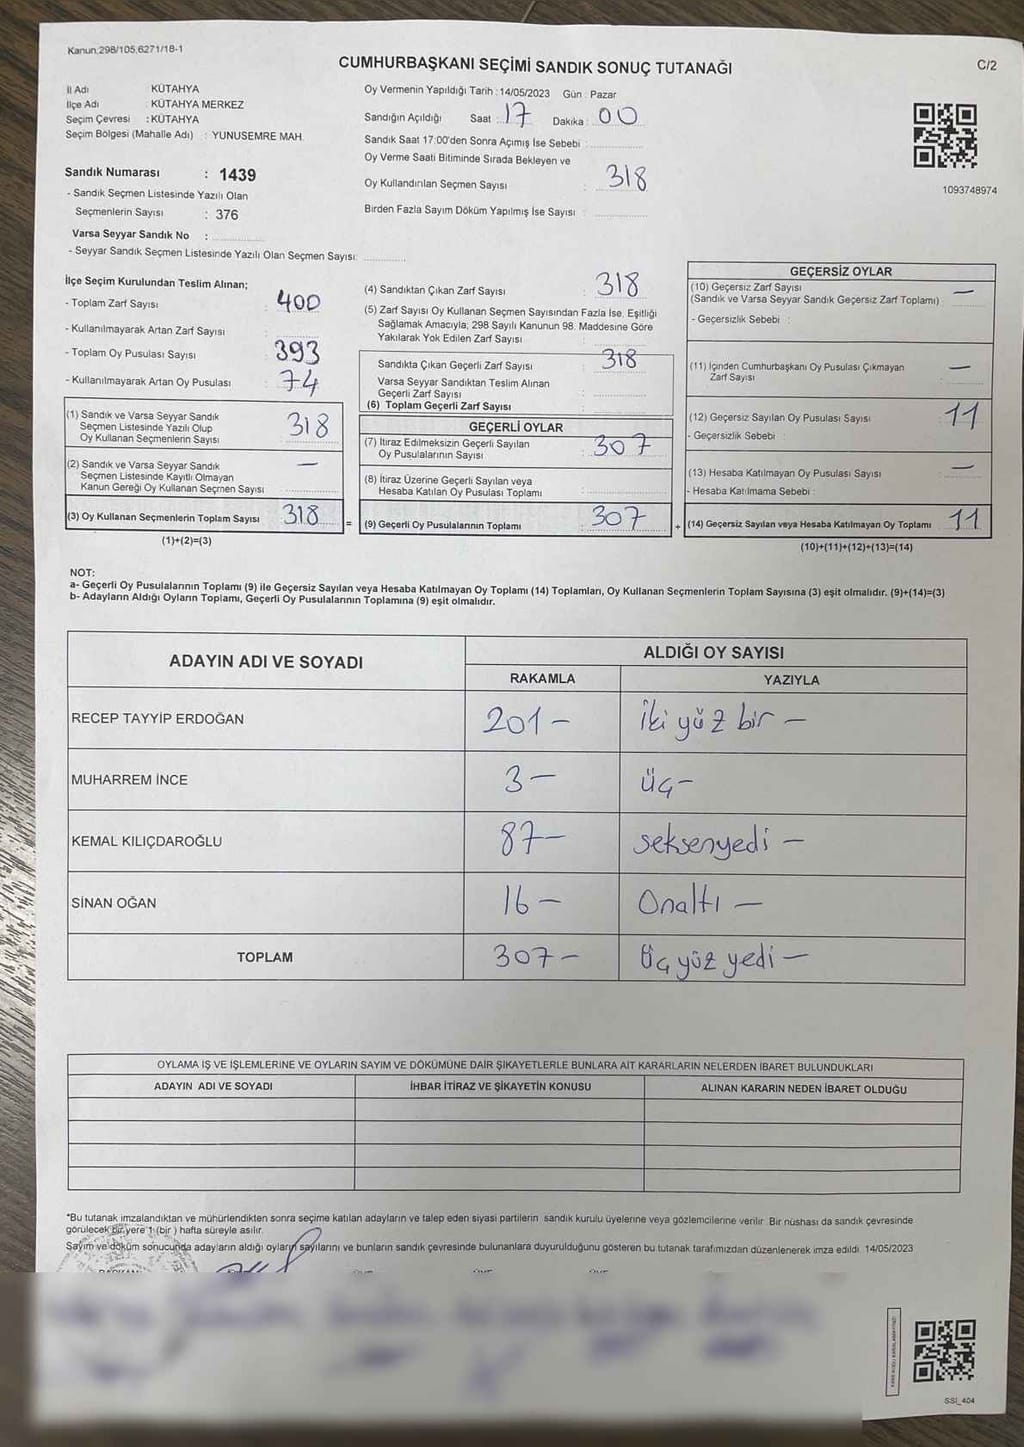 Kanun:298/105,6271/18-1
CUMHURBAŞKANI SEÇİMİ SANDIK SONUÇ TUTANAĞI
C/2
İl Adı KÜTAHYA
İlçe Adı : KÜTAHYA MERKEZ
Seçim Çevresi : KÜTAHYA
Seçim Bölgesi (Mahalle Adı) : YUNUSEMRE MAH.
Sandık Numarası : 1439
- Sandık Seçmen Listesinde Yazılı Olan
Seçmenlerin Sayısı : 376
Varsa Seyyar Sandık No :
- Seyyar Sandık Seçmen Listesinde Yazılı Olan Seçmen Sayısı:
Oy Vermenin Yapıldığı Tarih : 14/05/2023 Gün : Pazar
Sandığın Açıldığı Saat : 17 Dakika : 00
Sandık Saat 17:00'den Sonra Açımış İse Sebebi :
Oy Verme Saati Bitiminde Sırada Bekleyen ve
Oy Kullandırılan Seçmen Sayısı : 318
Birden Fazla Sayım Döküm Yapılmış İse Sayısı :
1093748974
İlçe Seçim Kurulundan Teslim Alınan;
- Toplam Zarf Sayısı : 400
- Kullanılmayarak Artan Zarf Sayısı :
- Toplam Oy Pusulası Sayısı : 393
- Kullanılmayarak Artan Oy Pusulası : 74
(1) Sandık ve Varsa Seyyar Sandık
Seçmen Listesinde Yazılı Olup
Oy Kullanan Seçmenlerin Sayısı : 318
(2) Sandık ve Varsa Seyyar Sandık
Seçmen Listesinde Kayıtlı Olmayan
Kanun Gereği Oy Kullanan Seçmen Sayısı : —
(3) Oy Kullanan Seçmenlerin Toplam Sayısı : 318 =
(1)+(2)=(3)
(4) Sandıktan Çıkan Zarf Sayısı : 318
(5) Zarf Sayısı Oy Kullanan Seçmen Sayısından Fazla İse, Eşitliği
Sağlamak Amacıyla; 298 Sayılı Kanunun 98. Maddesine Göre
Yakılarak Yok Edilen Zarf Sayısı :
Sandıkta Çıkan Geçerli Zarf Sayısı : 318
Varsa Seyyar Sandıktan Teslim Alınan
Geçerli Zarf Sayısı :
(6) Toplam Geçerli Zarf Sayısı :
GEÇERLİ OYLAR
(7) İtiraz Edilmeksizin Geçerli Sayılan
Oy Pusulalarının Sayısı : 307
(8) İtiraz Üzerine Geçerli Sayılan veya
Hesaba Katılan Oy Pusulası Toplamı :
(9) Geçerli Oy Pusulalarının Toplamı : 307 +
GEÇERSİZ OYLAR
(10) Geçersiz Zarf Sayısı : —
(Sandık ve Varsa Seyyar Sandık Geçersiz Zarf Toplamı)
- Geçersizlik Sebebi :
(11) İçinden Cumhurbaşkanı Oy Pusulası Çıkmayan
Zarf Sayısı : —
(12) Geçersiz Sayılan Oy Pusulası Sayısı : 11
- Geçersizlik Sebebi :
(13) Hesaba Katılmayan Oy Pusulası Sayısı : —
- Hesaba Katılmama Sebebi :
(14) Geçersiz Sayılan veya Hesaba Katılmayan Oy Toplamı : 11
(10)+(11)+(12)+(13)=(14)
NOT:
a- Geçerli Oy Pusulalarının Toplamı (9) ile Geçersiz Sayılan veya Hesaba Katılmayan Oy Toplamı (14) Toplamları, Oy Kullanan Seçmenlerin Toplam Sayısına (3) eşit olmalıdır. (9)+(14)=(3)
b- Adayların Aldığı Oyların Toplamı, Geçerli Oy Pusulalarının Toplamına (9) eşit olmalıdır.
ADAYIN ADI VE SOYADI ALDIĞI OY SAYISI
RAKAMLA YAZIYLA
RECEP TAYYİP ERDOĞAN 201 — iki yüz bir —
MUHARREM İNCE 3 — üç —
KEMAL KILIÇDAROĞLU 87 — seksenyedi —
SİNAN OĞAN 16 — Onaltı —
TOPLAM 307 — Üç yüz yedi —
OYLAMA İŞ VE İŞLEMLERİNE VE OYLARIN SAYIM VE DÖKÜMÜNE DAİR ŞİKAYETLERLE BUNLARA AİT KARARLARIN NELERDEN İBARET BULUNDUKLARI
ADAYIN ADI VE SOYADI İHBAR İTİRAZ VE ŞİKAYETİN KONUSU ALINAN KARARIN NEDEN İBARET OLDUĞU
*Bu tutanak imzalandıktan ve mühürlendikten sonra seçime katılan adayların ve talep eden siyasi partilerin sandık kurulu üyelerine veya gözlemcilerine verilir. Bir nüshası da sandık çevresinde
görülecek bir yere 1 (bir ) hafta süreyle asılır.
Sayım ve döküm sonucunda adayların aldığı oyların sayılarını ve bunların sandık çevresinde bulunanlara duyurulduğunu gösteren bu tutanak tarafımızdan düzenlenerek imza edildi. 14/05/2023
SSİ_404